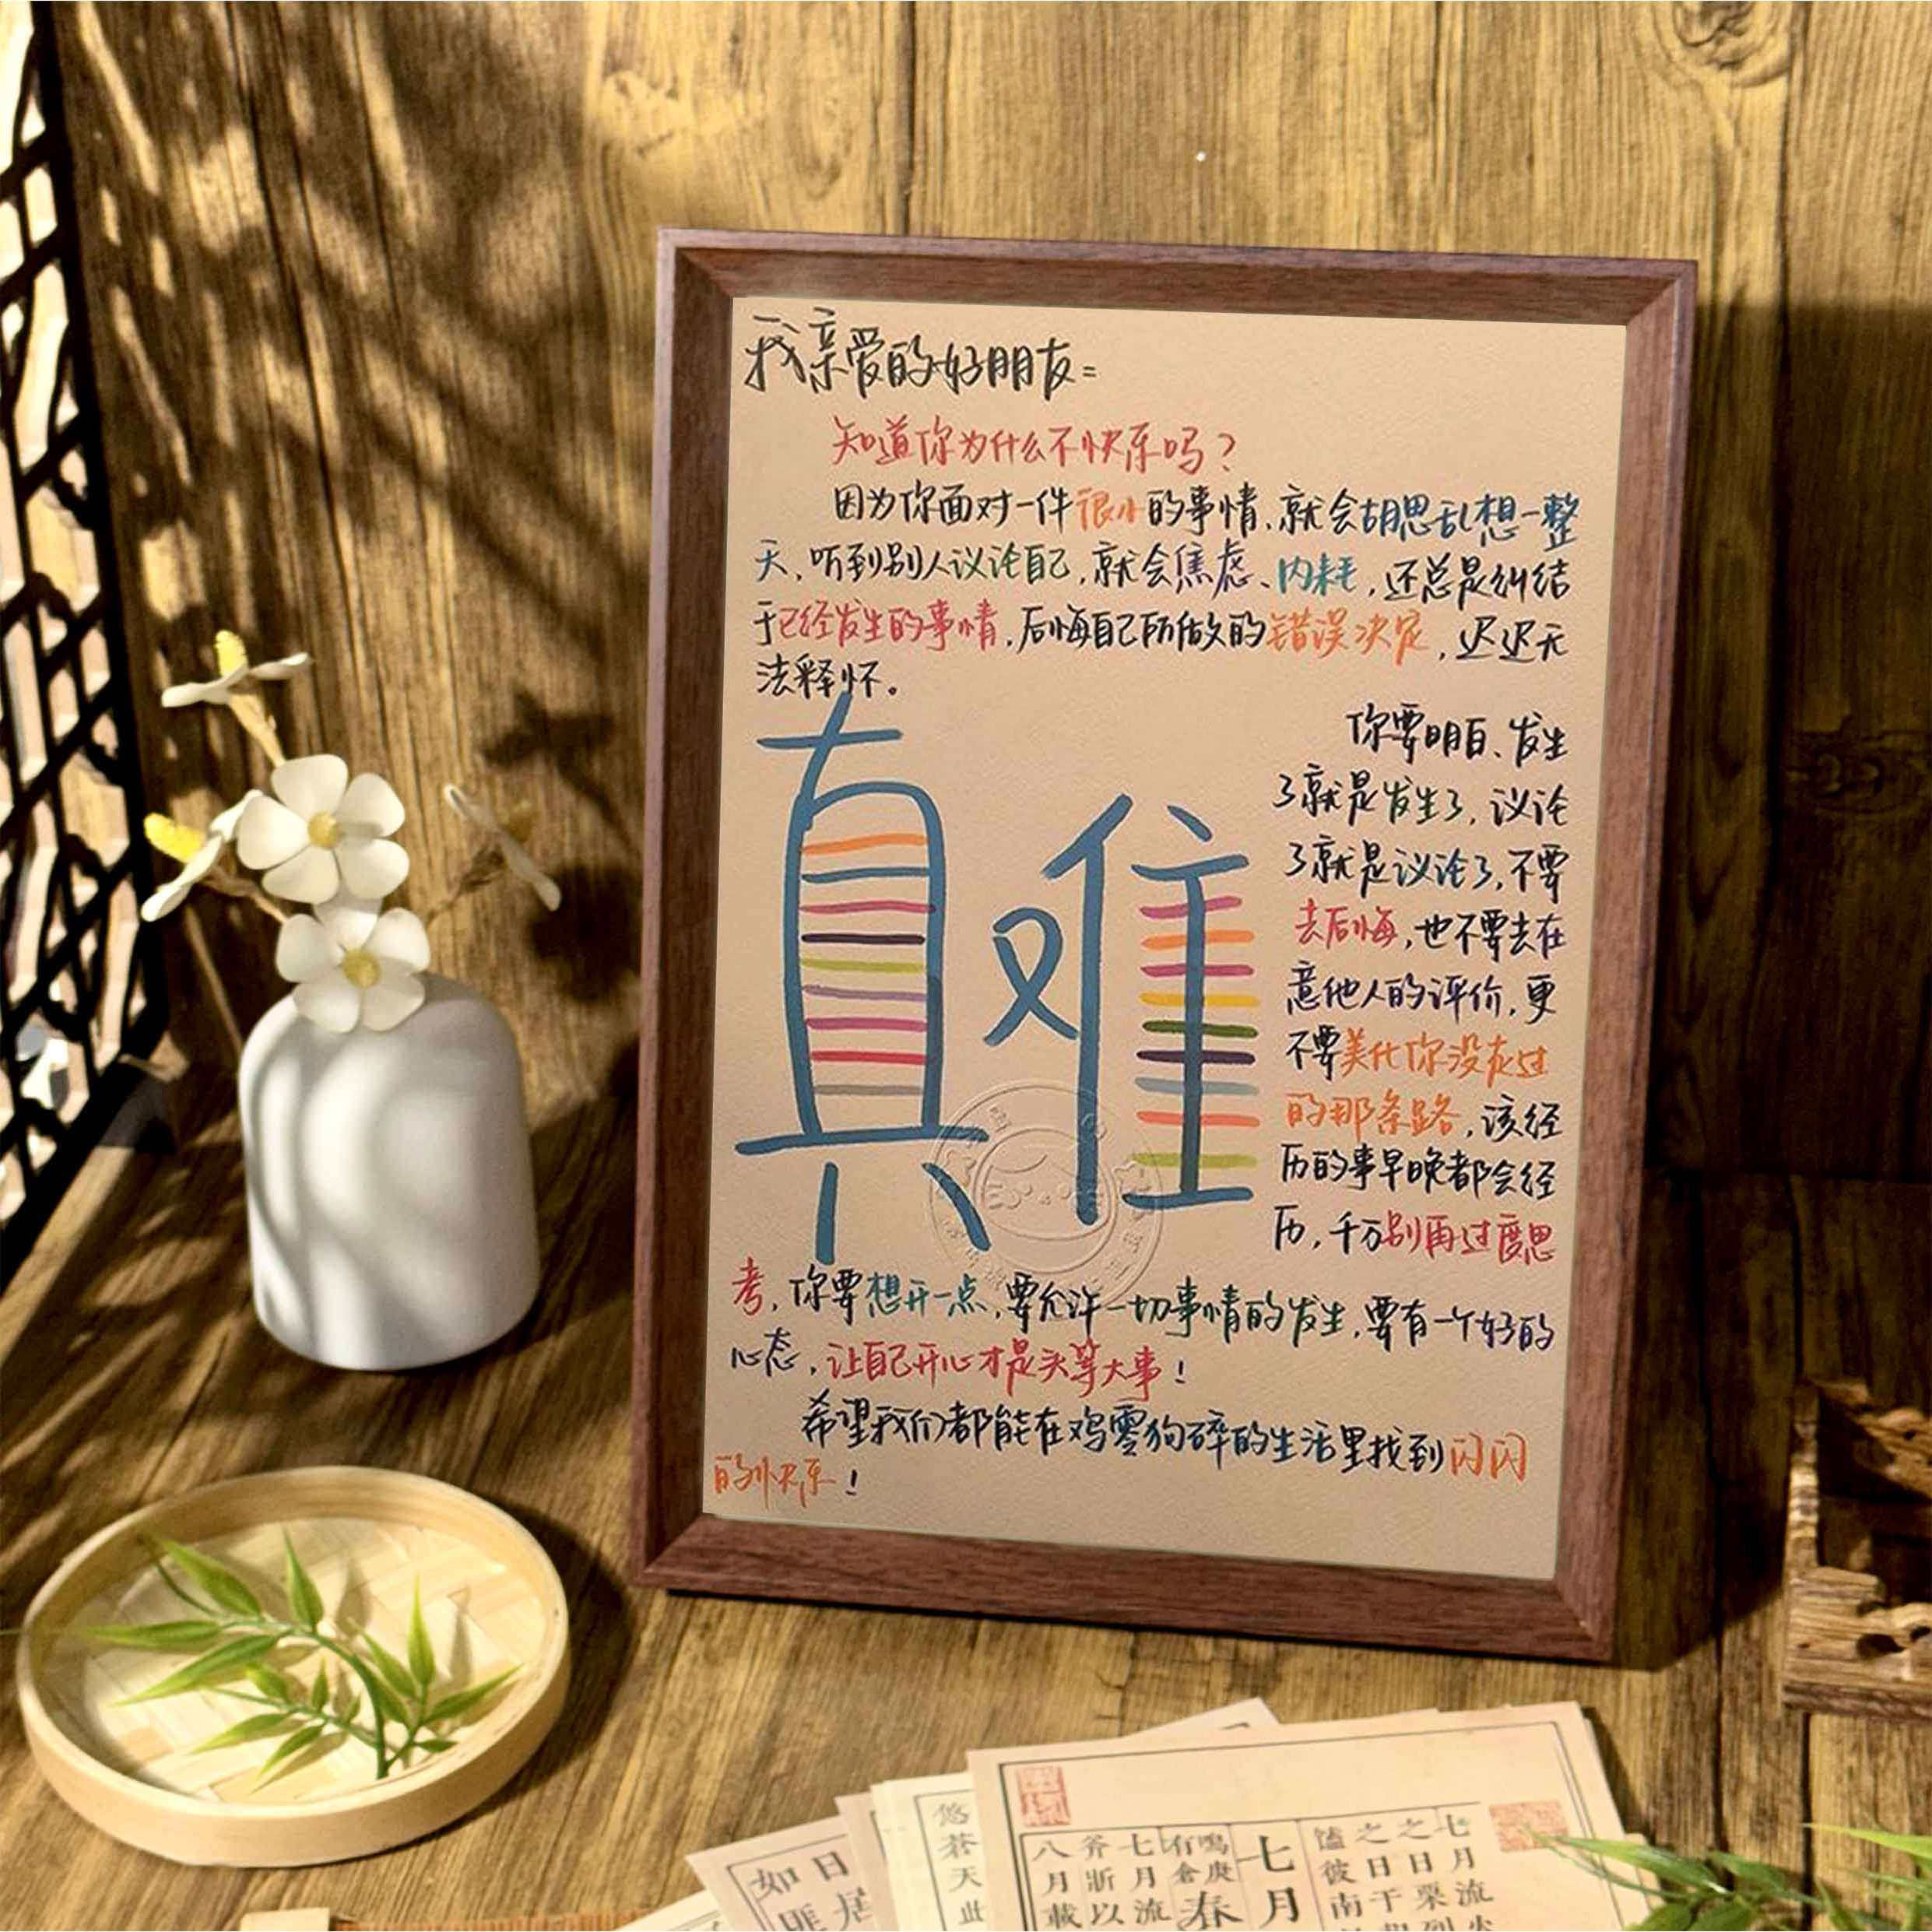 我亲爱的好朋友:
知道你为什么不快乐吗?
因为你面对一件很小的事情、就会胡思乱想一整
天,听到别人议论自己,就会焦虑、内耗,还总是纠结
于已经发生的事情,后悔自己所做的错误决定,迟迟无
法释怀。
真难
你要明白、发生
了就是发生了,议论
了就是议论了,不要
去后悔,也不要去在
意他人的评价,更
不要美化你没走过
的那条路,该经
历的事早晚都会经
历,千万别再过度思
考,你要想开一点,要允许一切事情的发生,要有一个好的
心态,让自己开心才是头等大事!
希望我们都能在鸡零狗碎的生活里找到闪闪
的快乐!
七月流
之日栗
之日于
馌彼南
七月
鳴庚
有倉
春
七月流
斧斨以
八月載
悠蒼天此
日居
如匪